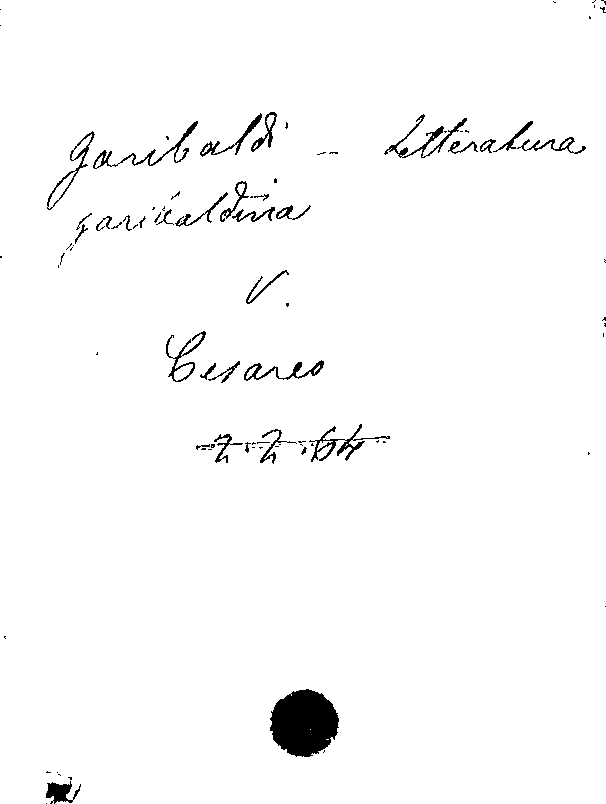 Garibaldi - Letteratura
garibaldina
V.
Cesareo
2.2.64